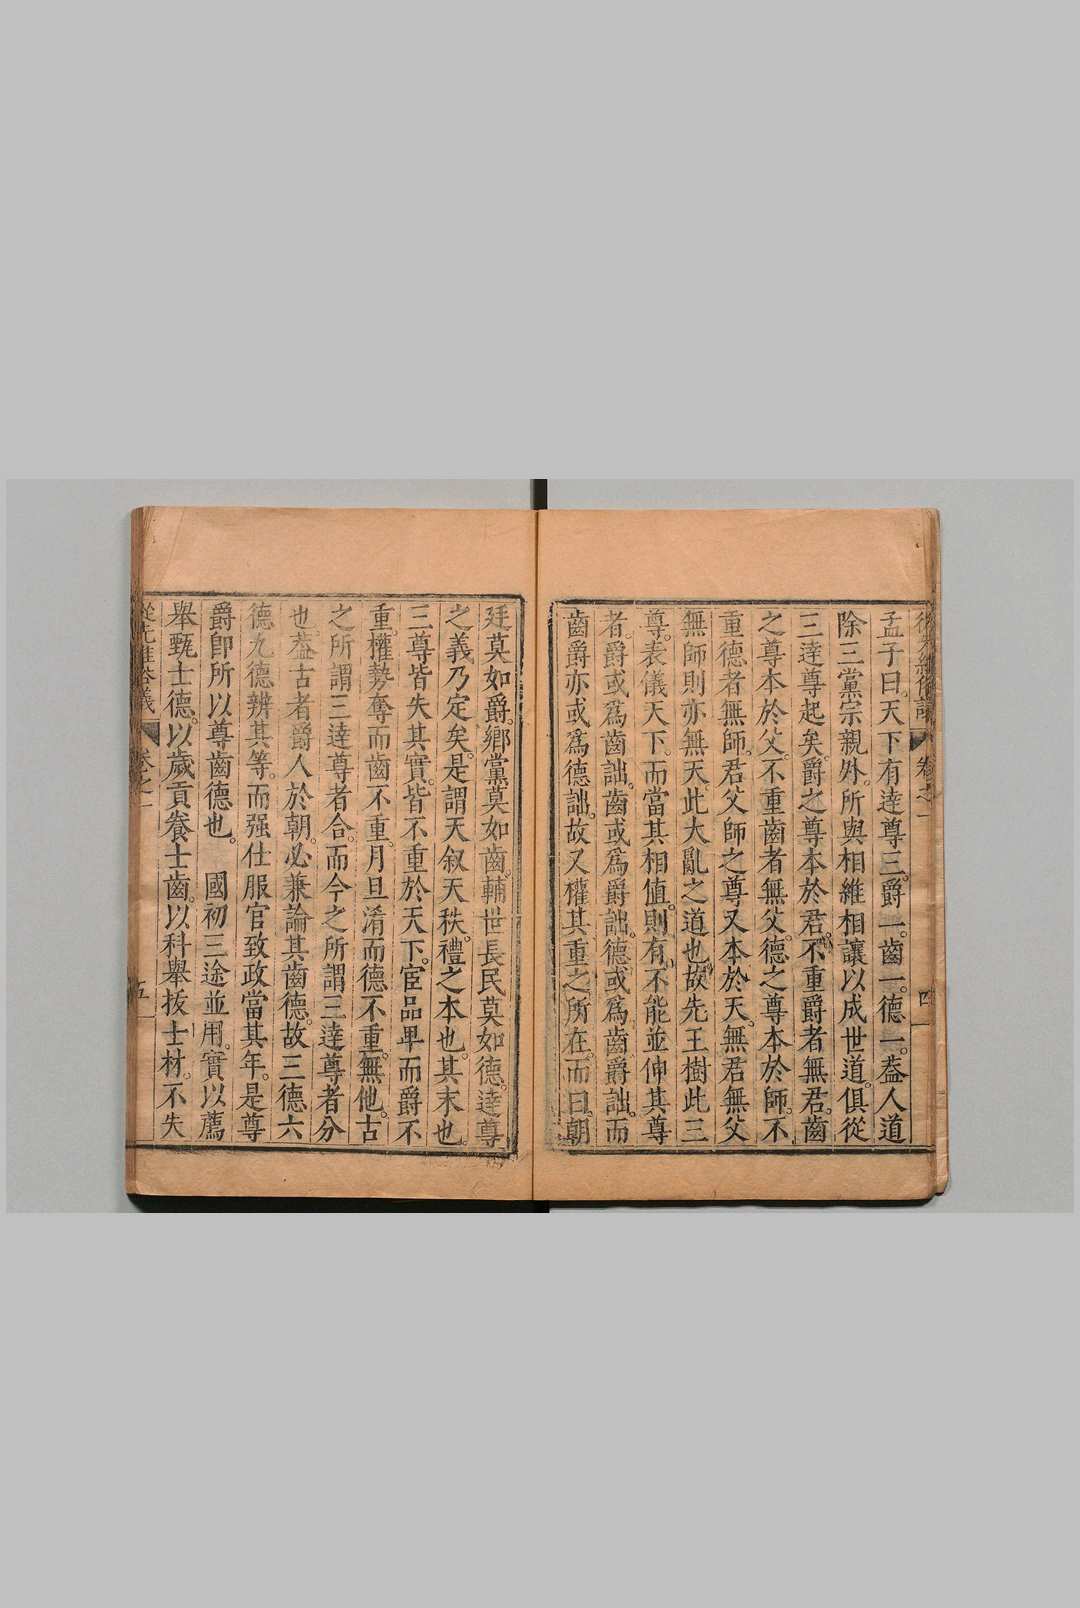 孟子曰。天下有達尊三。爵一。齒一。德一。蓋人道
除三黨宗親外。所與相維相讓以成世道。俱從
三達尊起矣。爵之尊本於君。不重爵者無君。齒
之尊本於父。不重齒者無父。德之尊本於師。不
重德者無師。君父師之尊又本於天。無君無父
無師則亦無天。此大亂之道也。故先王樹此三
尊。表儀天下。而當其相值。則有不能並伸其尊
者。爵或爲齒詘。齒或爲爵詘。德或爲齒爵詘。而
齒爵亦或爲德詘。故又權其重之所在。而曰。朝
廷莫如爵。鄉黨莫如齒。輔世長民莫如德。達尊
之義乃定矣。是謂天叙天秩。禮之本也。其末也。
三尊皆失其實。皆不重於天下。宦品卑而爵不
重。權勢奪而齒不重。月旦淆而德不重。無他。古
之所謂三達尊者合。而今之所謂三達尊者分
也。蓋古者爵人於朝。必兼論其齒德。故三德六
德九德辨其等。而强仕服官致政當其年。是尊
爵卽所以尊齒德也。 國初三途並用。實以薦
舉甄士德。以歲貢養士齒。以科舉拔士材。不失
從先維俗議 卷之一
五